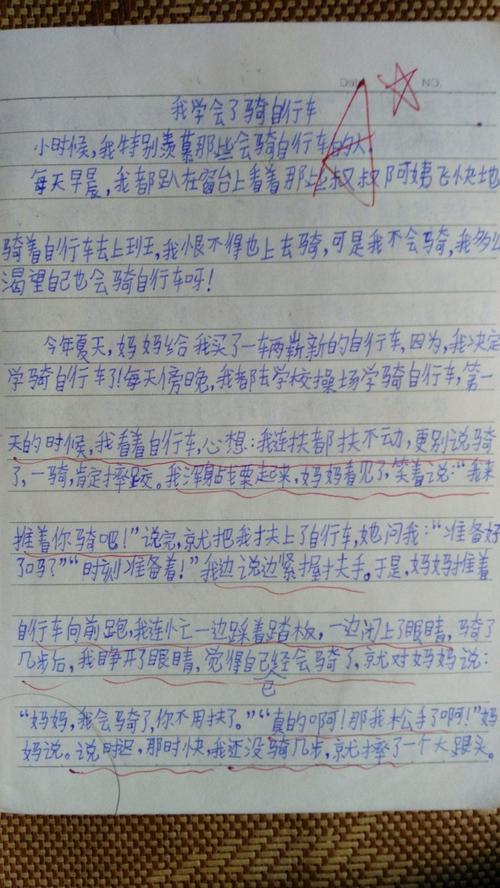 我学会了骑自行车
小时候,我特别羡慕那些会骑自行车的大
每天早晨,我都趴在窗台上看着那些叔叔阿姨飞快地
骑着自行车去上班,我恨不得也上去骑,可是我不会骑,我多么
渴望自己也会骑自行车呀!
今年夏天,妈妈给我买了一车两崭新的自行车,因为,我决定
学骑自行车了!每天傍晚,我都去学校操场学骑自行车,第一
天的时候,我看着自行车,心想:我连扶都扶不动,更别说骑
了,一骑,肯定摔跤。我浑身占栗起来,妈妈看见了,笑着说:“我来
推着你骑吧!”说完,就把我扶上了自行车,她问我:“准备好
了吗?”“时刻准备着!”我边说边紧握扶手。于是,妈妈推着
自行车向前跑,我连忙一边踩着踏板,一边闭上了眼睛,骑了
几步后,我睁开了眼睛,觉得自己经会骑了,就对妈妈说:
已
“妈妈,我会骑了,你不用扶了。”“真的啊!那我松手了啊!”妈
妈说。说时迟,那时快,我还没骑几步,就摔了一个大跟头。